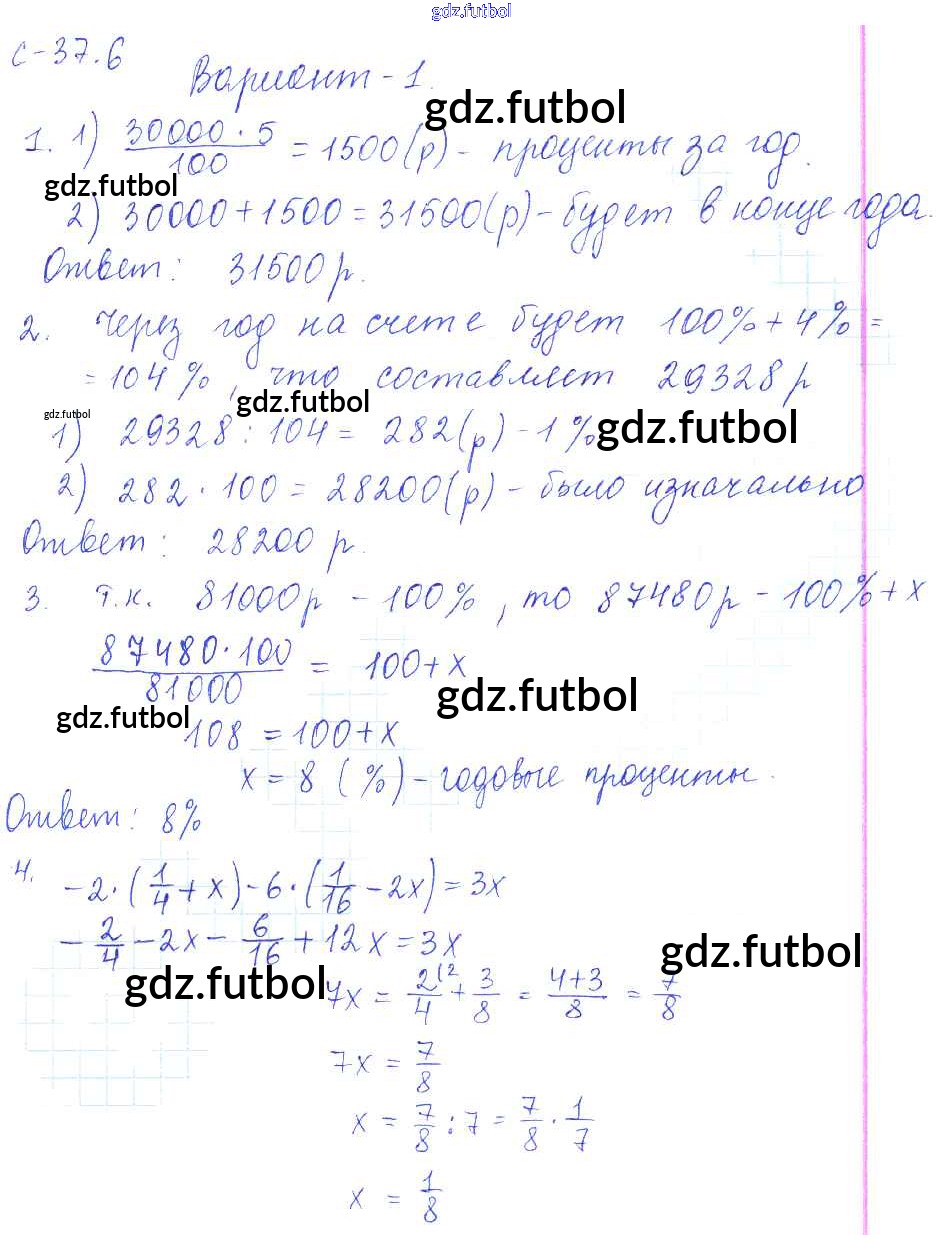 gdz.futbol
С-37.6
Вариант-1.
gdz.futbol
1. 1) 30000·5/100 = 1500(р) - проценты за год.
gdz.futbol
2) 30000+1500=31500(р)-будет в конце года.
Ответ: 31500 р.
2. Через год на счете будет 100%+4%=
=104%, что составляет 29328 р
gdz.futbol
gdz.futbol
1) 29328:104= 282(р)-1%
gdz.futbol
2) 282·100=28200(р)-было изначально
Ответ: 28200 р.
3. т.к. 81000р -100%, то 87480р-100%+x
87480·100/81000 = 100+x
gdz.futbol
gdz.futbol
108 =100+x
x = 8 (%)-годовые проценты.
Ответ: 8%
4. -2·(1/4+x)-6·(1/16-2x)=3x
-2/4-2x-6/16+12x=3x
gdz.futbol
gdz.futbol
7x = 2(2/4+3/8 = 4+3/8 = 7/8
7x = 7/8
x = 7/8:7=7/8·1/7
x = 1/8